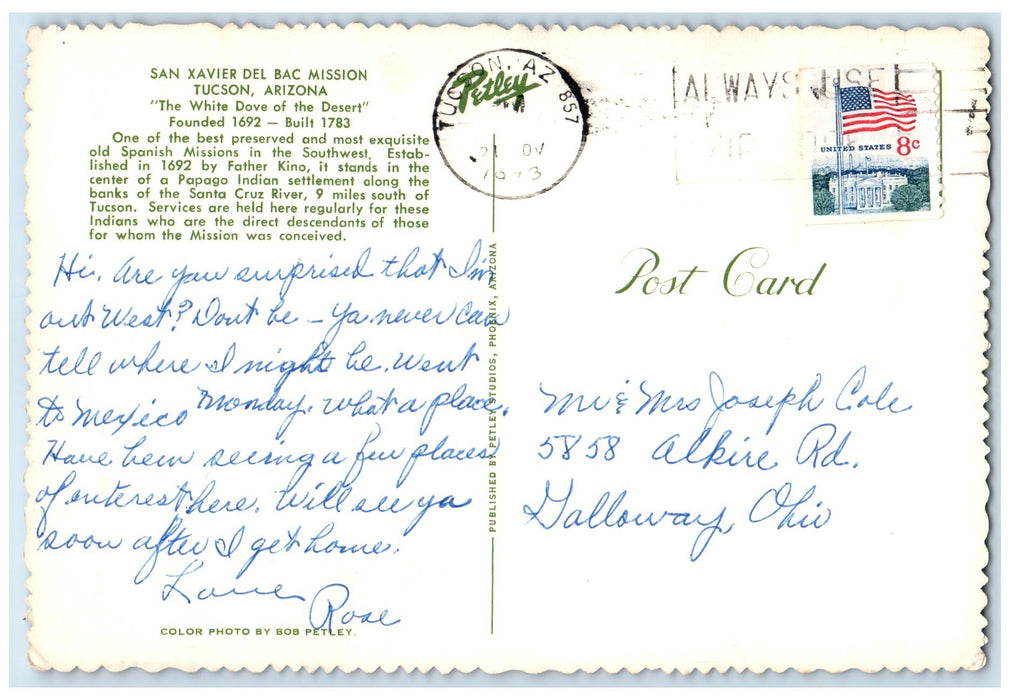 SAN XAVIER DEL BAC MISSION
TUCSON, ARIZONA
"The White Dove of the Desert"
Founded 1692 — Built 1783
One of the best preserved and most exquisite
old Spanish Missions in the Southwest. Estab-
lished in 1692 by Father Kino, it stands in the
center of a Papago Indian settlement along the
banks of the Santa Cruz River, 9 miles south of
Tucson. Services are held here regularly for these
Indians who are the direct descendants of those
for whom the Mission was conceived.
Hi. Are you surprised that I'm
out West? Dont be – ya never can
tell where I might be. Went
to Mexico Monday. What a place.
Have been seeing a few places
of interest here. Will see ya
soon after I get home.
Love
Rose
COLOR PHOTO BY BOB PETLEY.
PUBLISHED BY PETLEY STUDIOS, PHOENIX, ARIZONA
Petley
TUCSON, AZ 857
21
1973
ALWAYS USE
ZIP
UNITED STATES 8c
Post Card
Mr & Mrs Joseph Cole
5858 Alkire Rd.
Galloway, Ohio